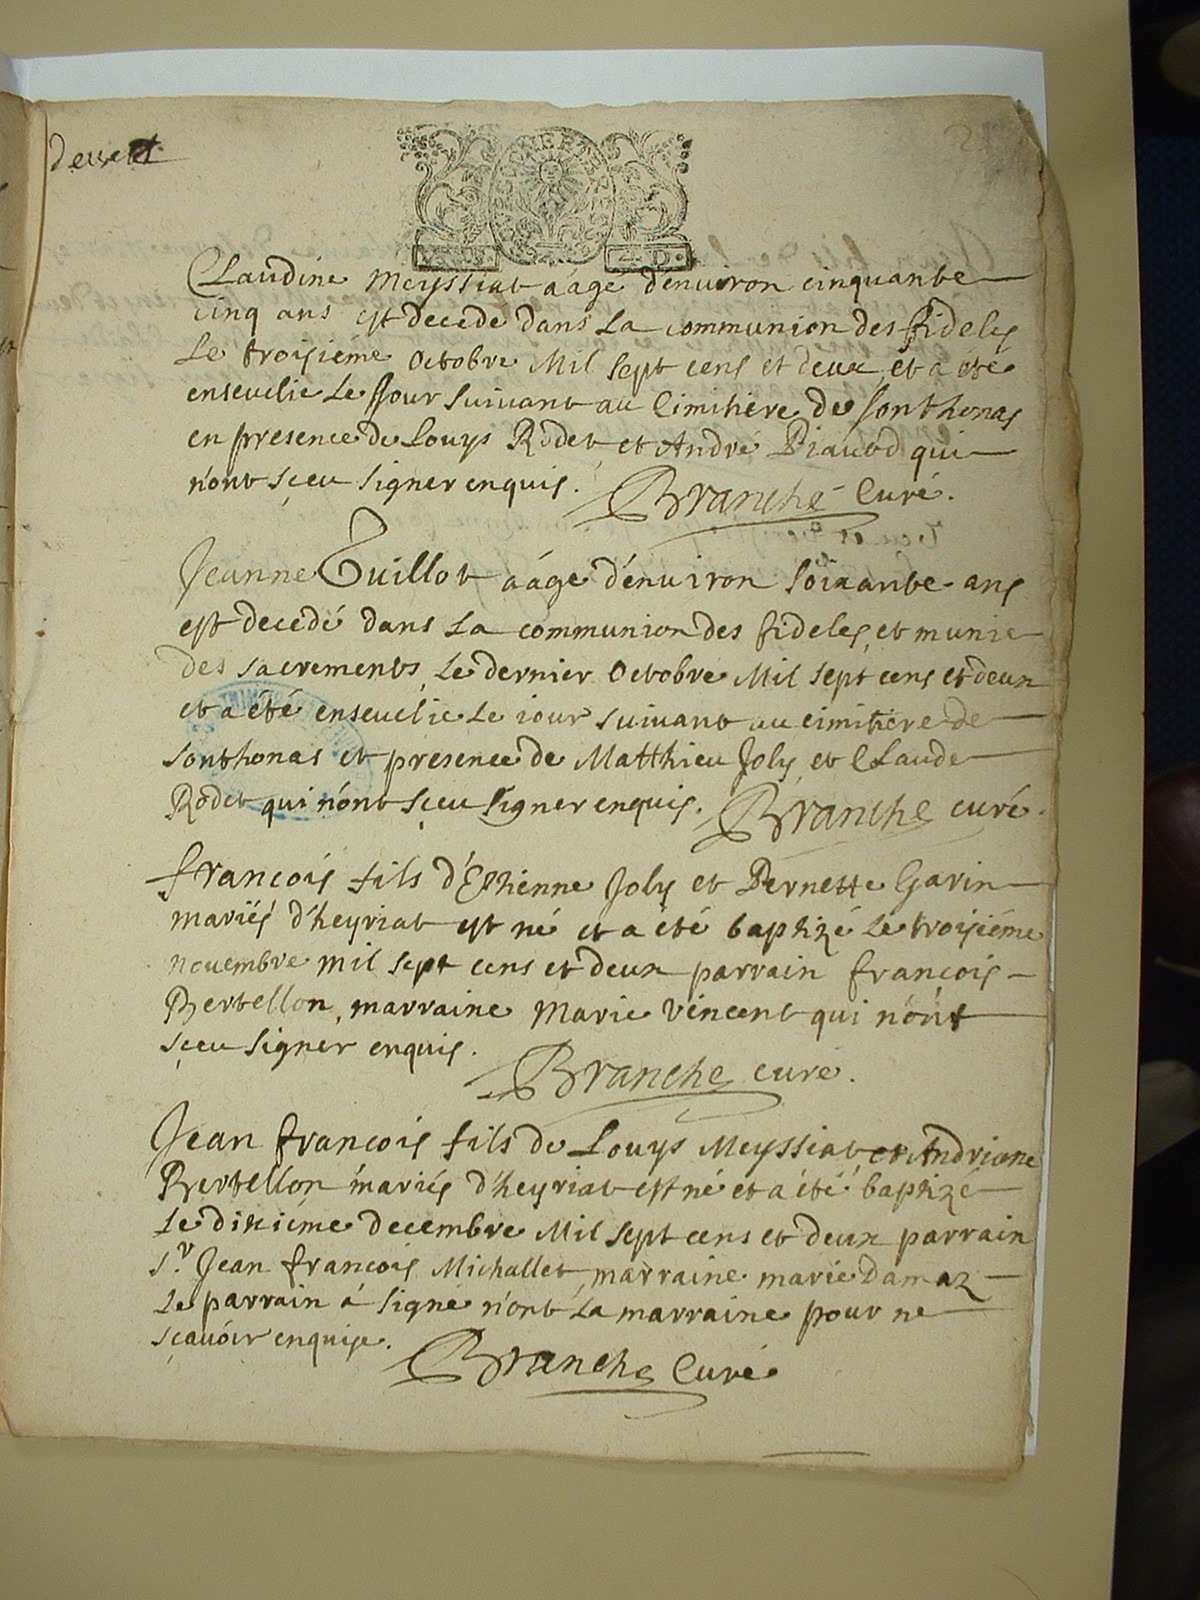 4. D.
Claudine Meyssiat aâge d'enuiron cinquante
cinq ans est decedé dans la communion des fideles
le troisiéme octobre Mil sept cens et deux et a eté
enseuelie le Jour suiuant au Cimitiere de Sonthonas
en presence de Louys Rodet et André Piauod qui
n'ont sçeu signer enquis. Branche Curé.
Jeanne Guillot aâge d'enuiron soixante ans
est decedé dans la communion des fideles, et munie
des sacrements, le dernier octobre Mil sept cens et deux
et a été enseuelie le iour suiuant au cimitiere de
Sonthonas et presence de Matthieu Joly et Claude
Rodet qui n'ont sçeu signer enquis. Branche curé.
François fils d'Estienne Joly et Pernette Garin
mariés d'heyriat est né et a été baptizé le troisiéme
nouembre mil sept cens et deux parrain François
Bertellon, marraine Marie Vincent qui n'ont
sçeu signer enquis. Branche curé.
Jean François fils de Louys Meyssiat et Andriane
Bertellon mariés d'heyriat est né et a été baptizé
le dixiéme decembre Mil sept cens et deux parrain
Sr. Jean François Michallet marraine marie Damaz
le parrain à signé n'ont la marraine pour ne
sçauoir enquise. Branche Curé